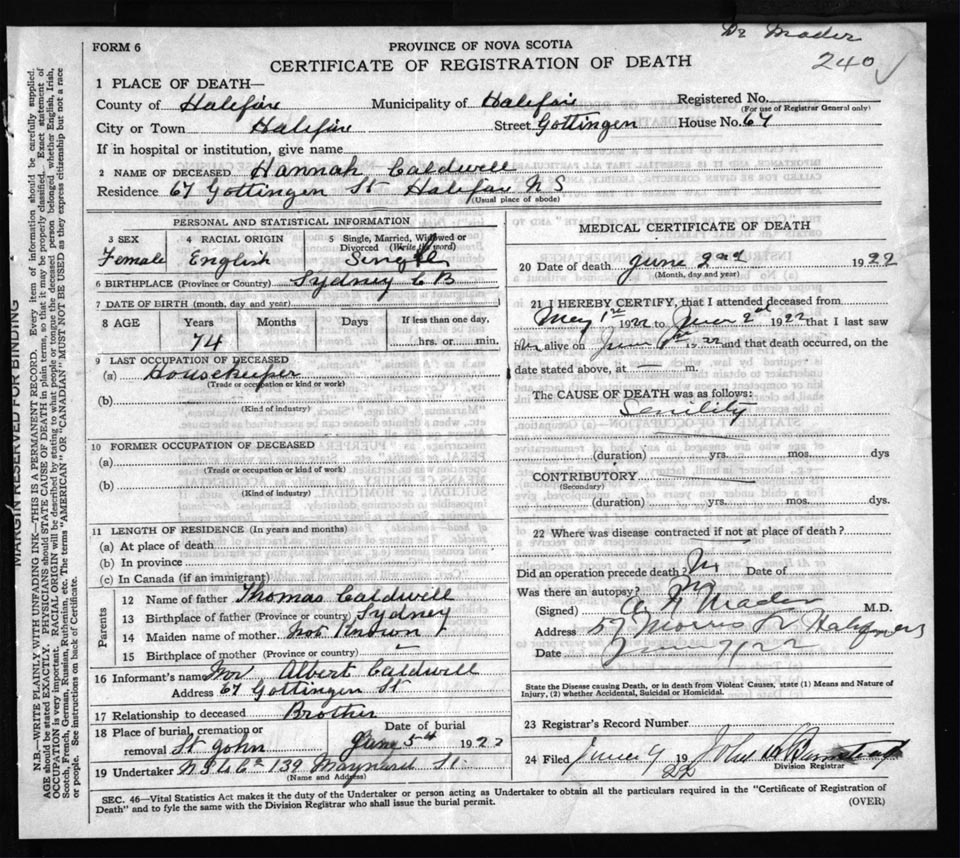 Dr Mader
240
FORM 6
PROVINCE OF NOVA SCOTIA
CERTIFICATE OF REGISTRATION OF DEATH
1 PLACE OF DEATH—
County of Halifax Municipality of Halifax Registered No.
(For use of Registrar General only)
City or Town Halifax Street Gottingen House No. 67
If in hospital or institution, give name
2 NAME OF DECEASED Hannah Caldwell
Residence 67 Gottingen St Halifax N S
(Usual place of abode)
PERSONAL AND STATISTICAL INFORMATION
3 SEX 4 RACIAL ORIGIN 5 Single, Married, Widowed or Divorced (Write the word)
Female English Single
6 BIRTHPLACE (Province or Country) Sydney C B
7 DATE OF BIRTH (month, day, and year)
8 AGE Years Months Days If less than one day,
74 hrs. or min.
9 LAST OCCUPATION OF DECEASED
(a) Housekeeper
(Trade or occupation or kind or work)
(b)
(Kind of industry)
10 FORMER OCCUPATION OF DECEASED
(a)
(Trade or occupation or kind of work)
(b)
(Kind of industry)
11 LENGTH OF RESIDENCE (In years and months)
(a) At place of death
(b) In province
(c) In Canada (if an immigrant)
Parents
12 Name of father Thomas Caldwell
13 Birthplace of father (Province or country) Sydney
14 Maiden name of mother Not Known
15 Birthplace of mother (Province or country)
16 Informant's name Albert Caldwell
Address 67 Gottingen St
17 Relationship to deceased Brother
18 Place of burial, cremation or Date of burial
removal St John June 5th 1922
19 Undertaker 139 Maynard St.
(Name and Address)
MEDICAL CERTIFICATE OF DEATH
20 Date of death June 2nd 1922
(Month, day and year)
21 I HEREBY CERTIFY, that I attended deceased from
May 1st 1922 to June 2nd 1922 that I last saw
her alive on June 1922 and that death occurred, on the
date stated above, at — m.
The CAUSE OF DEATH was as follows:
Senility
(duration) yrs. mos. dys
CONTRIBUTORY
(Secondary)
(duration) yrs. mos. dys.
22 Where was disease contracted if not at place of death?
Did an operation precede death? No Date of
Was there an autopsy? No
(Signed) Mader M.D.
Address 57 Morris St Halifax
Date June 22
State the Disease causing Death, or in death from Violent Causes, state (1) Means and Nature of
Injury, (2) whether Accidental, Suicidal or Homicidal.
23 Registrar's Record Number
24 Filed June 9 1922 John
Division Registrar
SEC. 46—Vital Statistics Act makes it the duty of the Undertaker or person acting as Undertaker to obtain all the particulars required in the "Certificate of Registration of
Death" and to fyle the same with the Division Registrar who shall issue the burial permit.
(OVER)
MARGIN RESERVED FOR BINDING
N.B.—WRITE PLAINLY WITH UNFADING INK—THIS IS A PERMANENT RECORD. Every item of information should be carefully supplied.
AGE should be stated EXACTLY. PHYSICIANS should STATE CAUSE OF DEATH in plain terms, so that it may be properly classified. Exact statement of
OCCUPATION is very important. RACIAL ORIGIN will be described by stating to what people or tongue the deceased person belonged whether English, Irish,
Scotch, French, German, Russian, Ruthenian, etc. The terms "AMERICAN" OR "CANADIAN" MUST NOT BE USED as they express citizenship but not a race
or people. See instructions on back of Certificate.